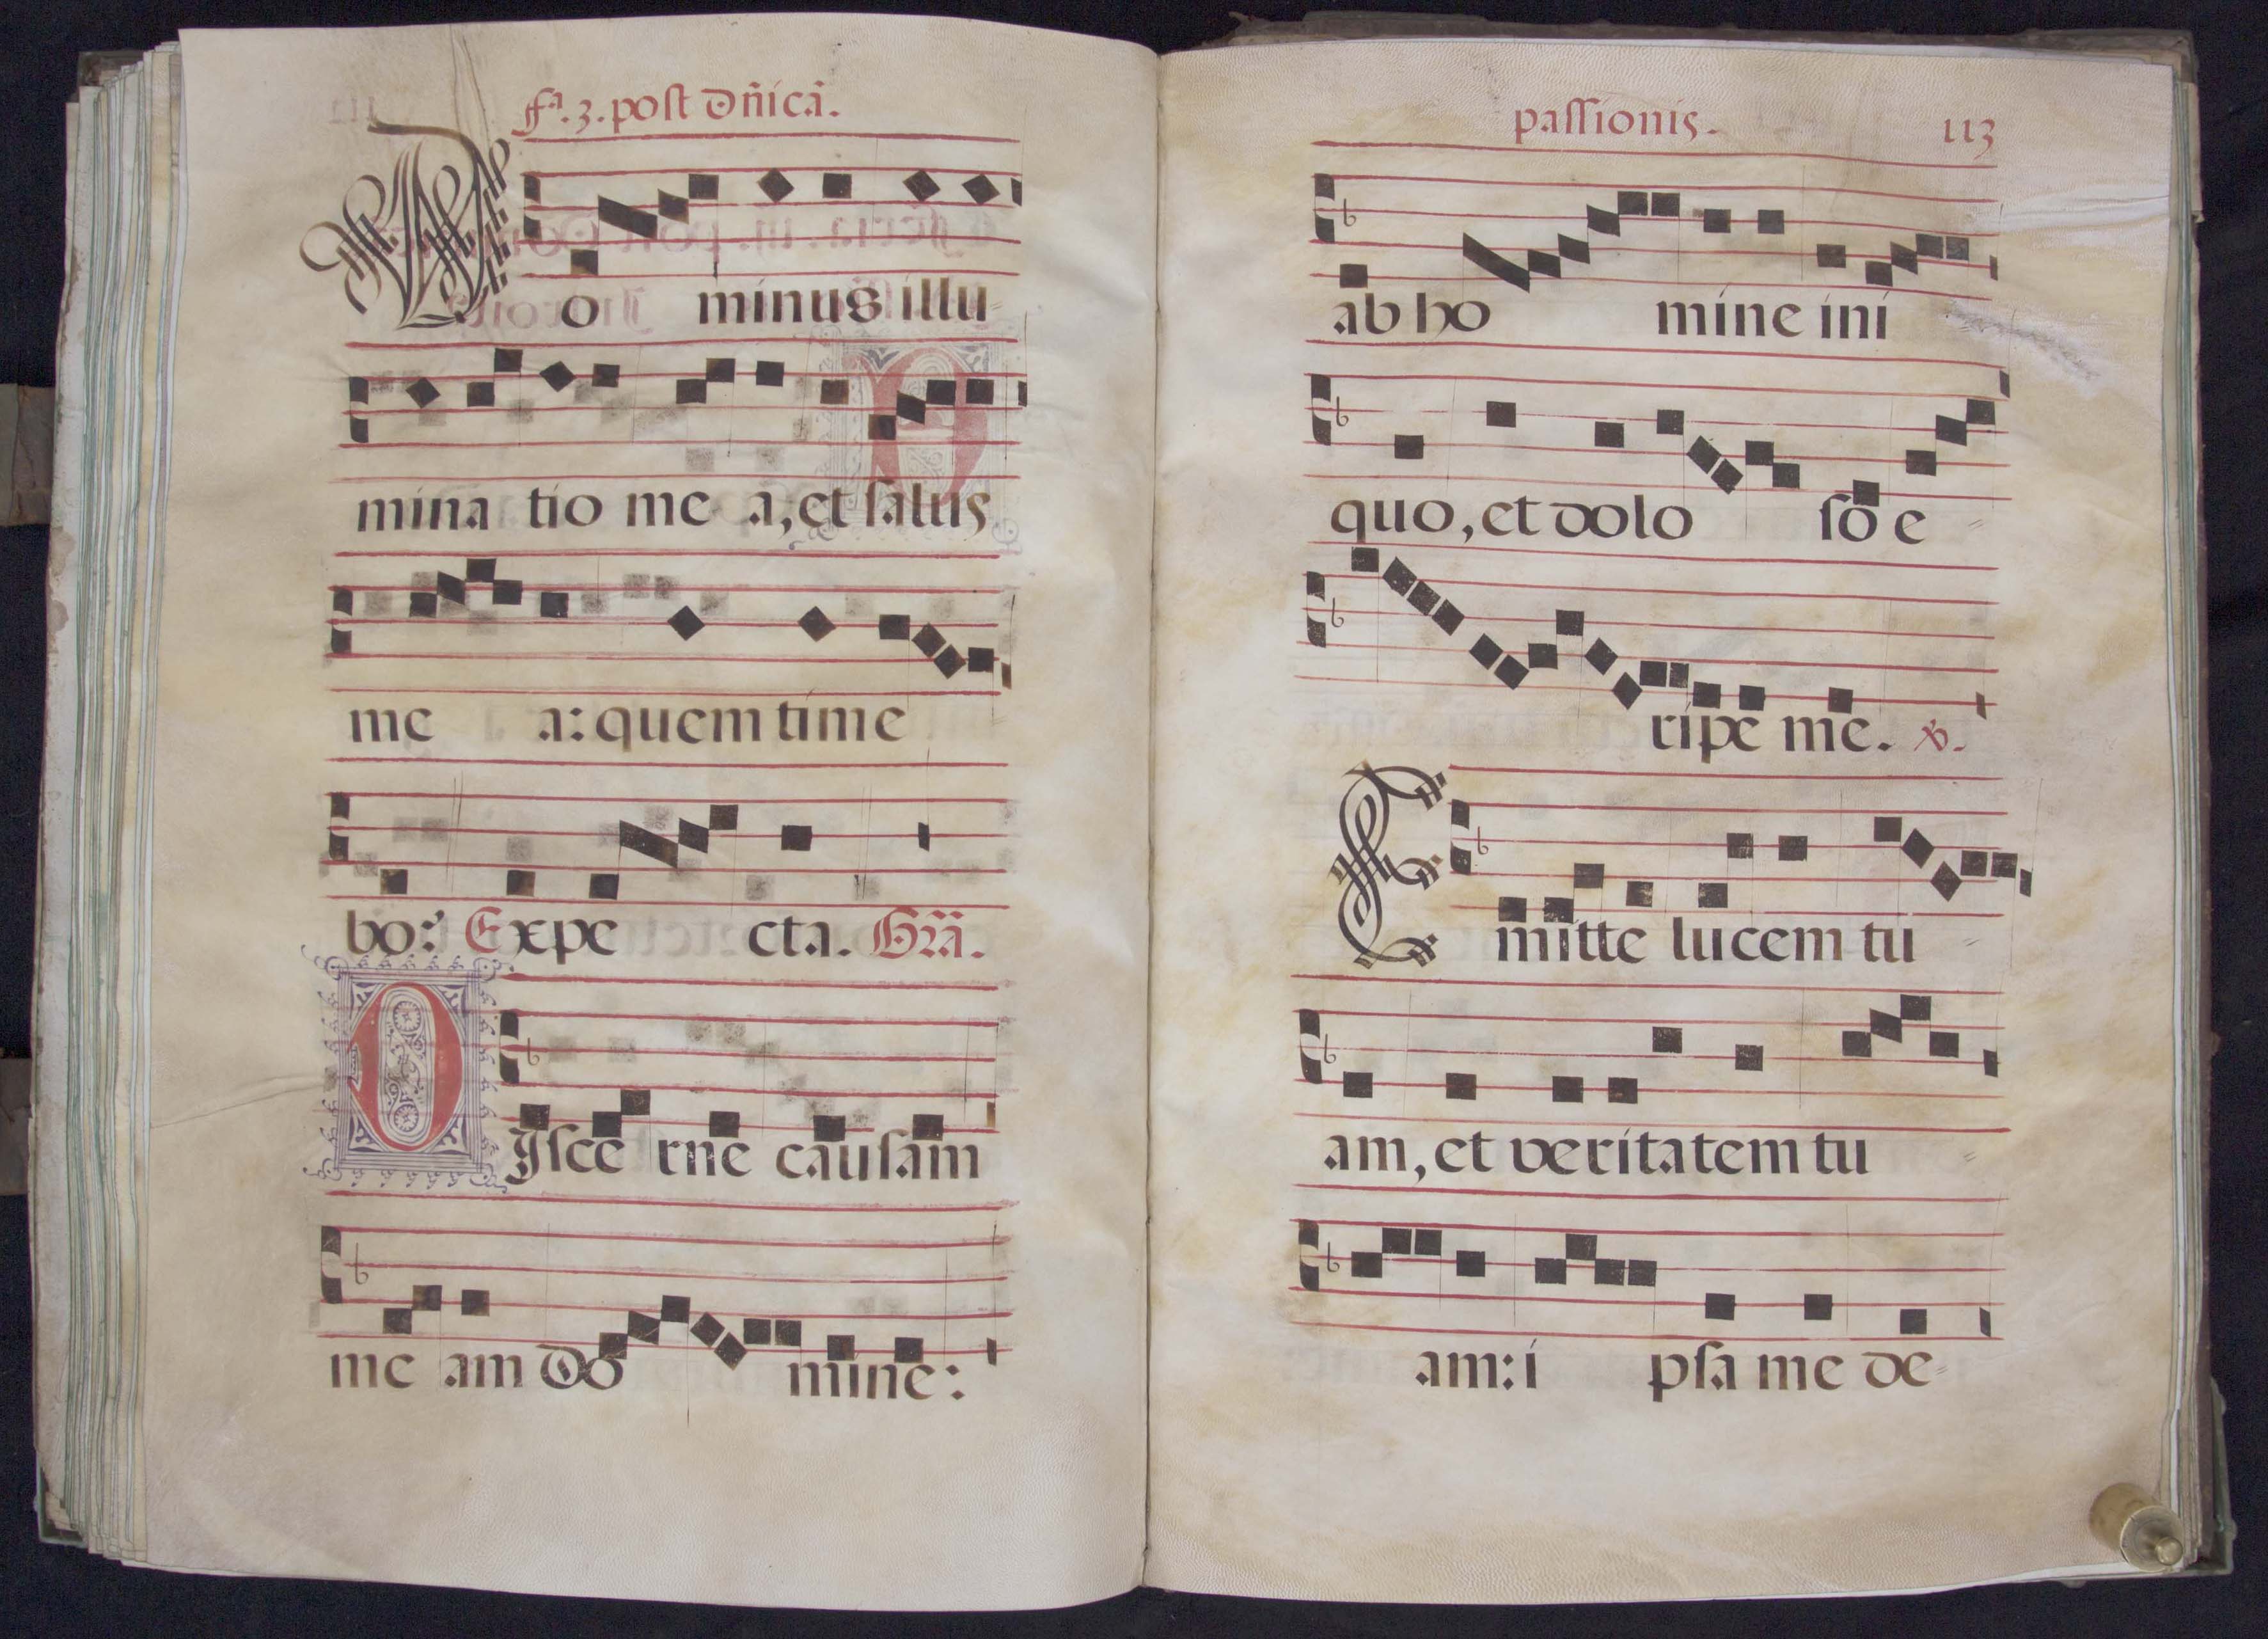 fª. 3. post dñicã.
Do minus illu
mina tio me a, et salus
me a: quem time
bo: Expe cta. Grã.
Disce rne causam
me am do mine:
passionis. 113
ab ho mine ini
quo, et dolo so e
ripe me. ℣.
Emitte lucem tu
am, et veritatem tu
am: i psa me de